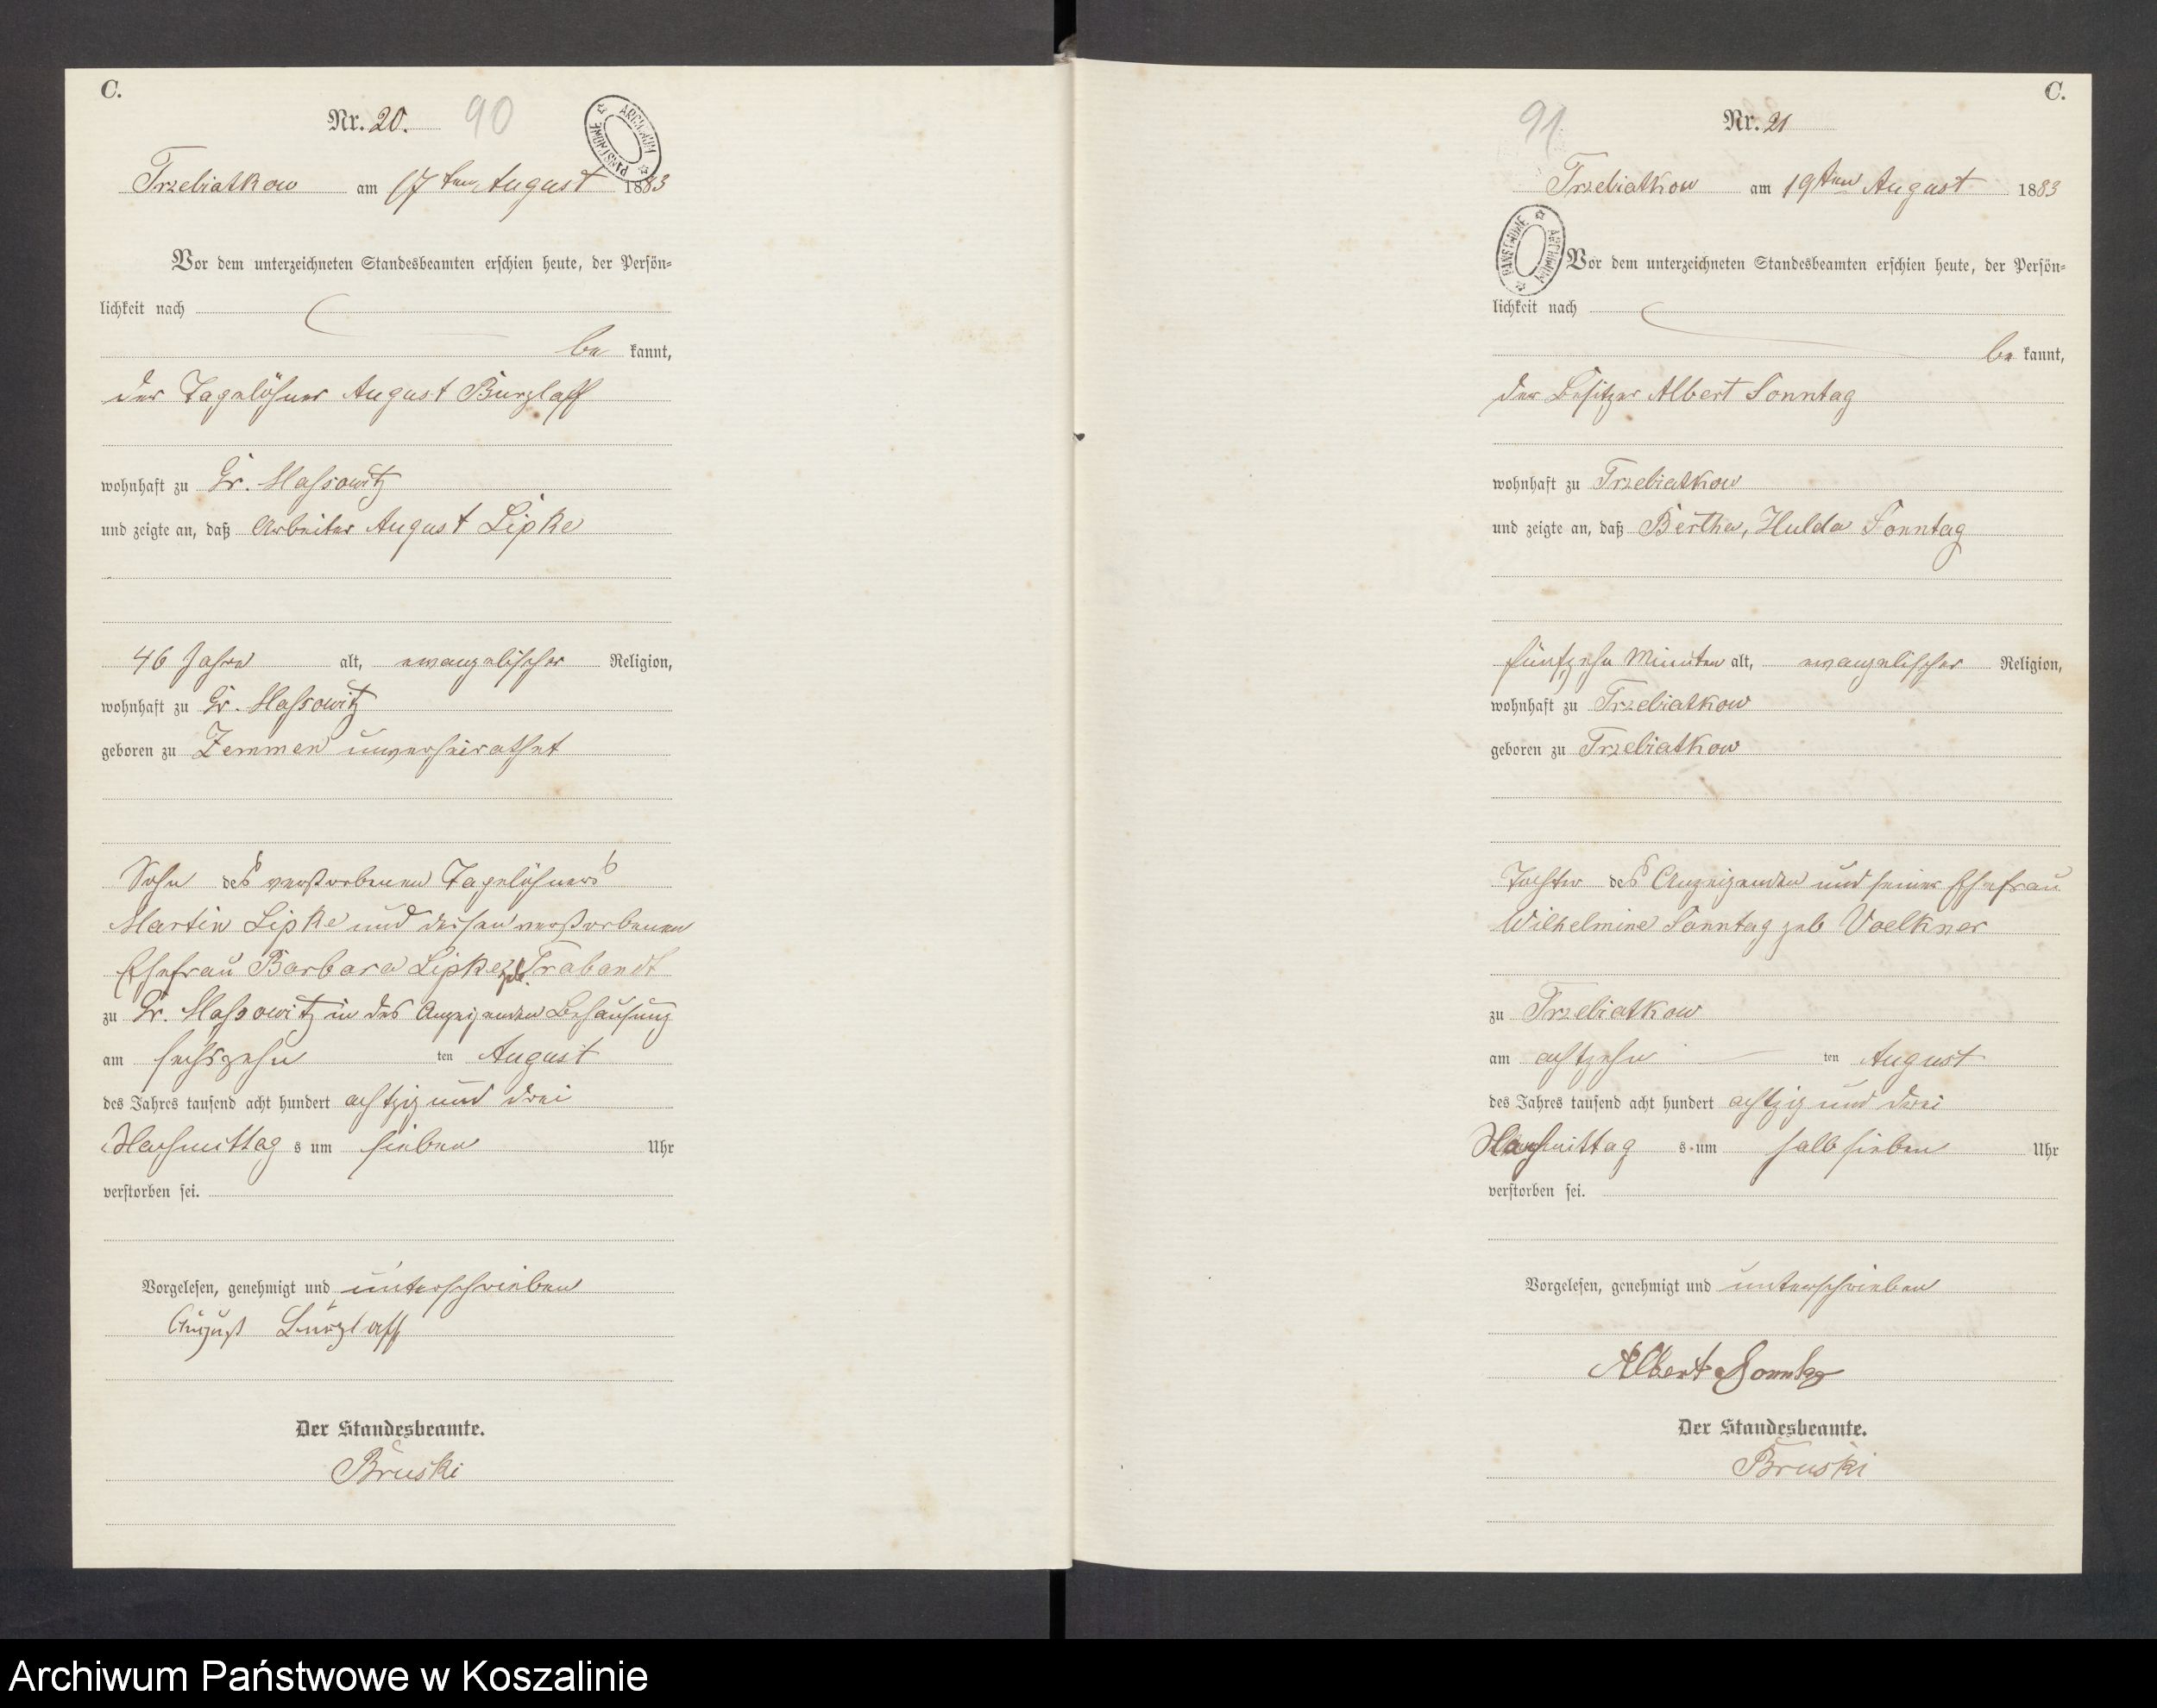 C.
Nr. 20. 90
ARCHIWUM PAŃSTWOWE
Trzebiatkow am 17ten August 1883
Vor dem unterzeichneten Standesbeamten erschien heute, der Persön=
lichkeit nach
be kannt,
der Tagelöhner August Burzlaff
wohnhaft zu Gr. Massowitz
und zeigte an, daß Arbeiter August Lipke
46 Jahre alt, evangelischer Religion,
wohnhaft zu Gr. Massowitz
geboren zu Zemmen unverheirathet
Sohn des verstorbenen Tagelöhners
Martin Lipke und dessen verstorbenen
Ehefrau Barbara Lipke geb. Trabandt
zu Gr. Massowitz in des Anzeigenden Behausung
am sechszehn ten August
des Jahres tausend acht hundert achtzig und drei
Nachmittag s um sieben Uhr
verstorben sei.
Vorgelesen, genehmigt und unterschrieben
August Burzlaff
Der Standesbeamte.
Bruski
C.
91 Nr. 21
Trzebiatkow am 19ten August 1883
ARCHIWUM PAŃSTWOWE
Vor dem unterzeichneten Standesbeamten erschien heute, der Persön=
lichkeit nach
be kannt,
der Besitzer Albert Sonntag
wohnhaft zu Trzebiatkow
und zeigte an, daß Bertha, Hulda Sonntag
fünfzehn Minuten alt, evangelischer Religion,
wohnhaft zu Trzebiatkow
geboren zu Trzebiatkow
Tochter des Anzeigenden und seiner Ehefrau
Wilhelmine Sonntag geb Voelkner
zu Trzebiatkow
am achtzehn ten August
des Jahres tausend acht hundert achtzig und drei
Nachmittag s um halb sieben Uhr
verstorben sei.
Vorgelesen, genehmigt und unterschrieben
Albert Sonntag
Der Standesbeamte.
Bruski
Archiwum Państwowe w Koszalinie